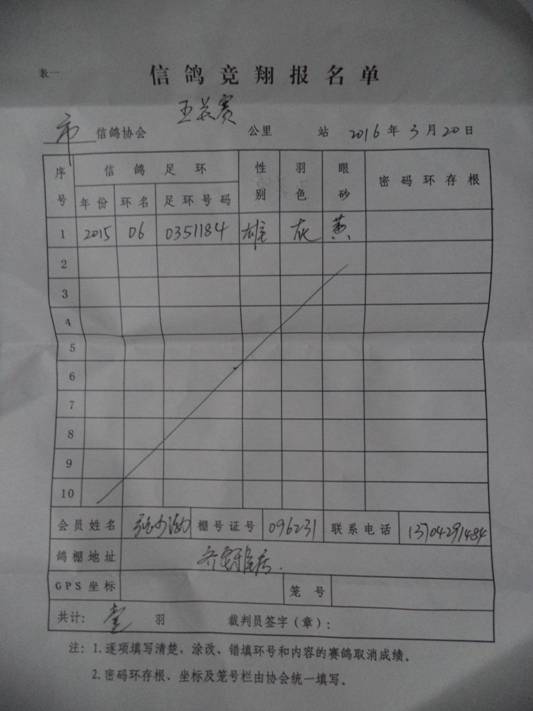 表一
信鸽竞翔报名单
五关赛
市 信鸽协会 公里 站 2016年3月20日
序号 信鸽足环 性别 羽色 眼砂 密码环存根
年份 环名 足环号码
1 2015 06 0351184 雄 灰 黄
2
3
4
5
6
7
8
9
10
会员姓名 棚号证号 096231 联系电话 13704291484
鸽棚地址
GPS坐标 笼号
共计: 壹 羽 裁判员签字(章):
注:1.逐项填写清楚、涂改、错填环号和内容的赛鸽取消成绩。
2.密码环存根、坐标及笼号栏由协会统一填写。